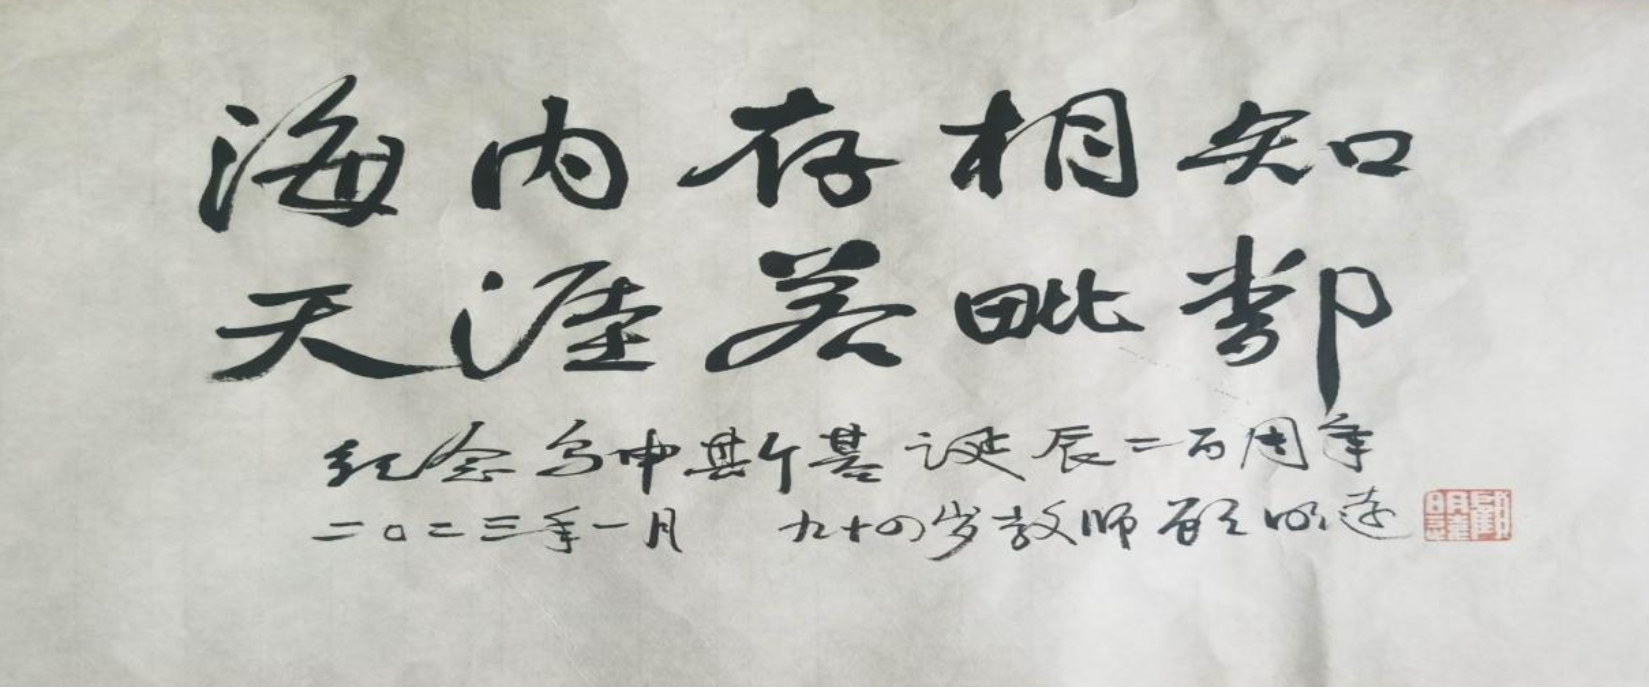 海内存相知
天涯若毗鄰
纪念乌申斯基诞辰二百周年
二〇二三年一月 九十四岁教师顾明远
顧明遠